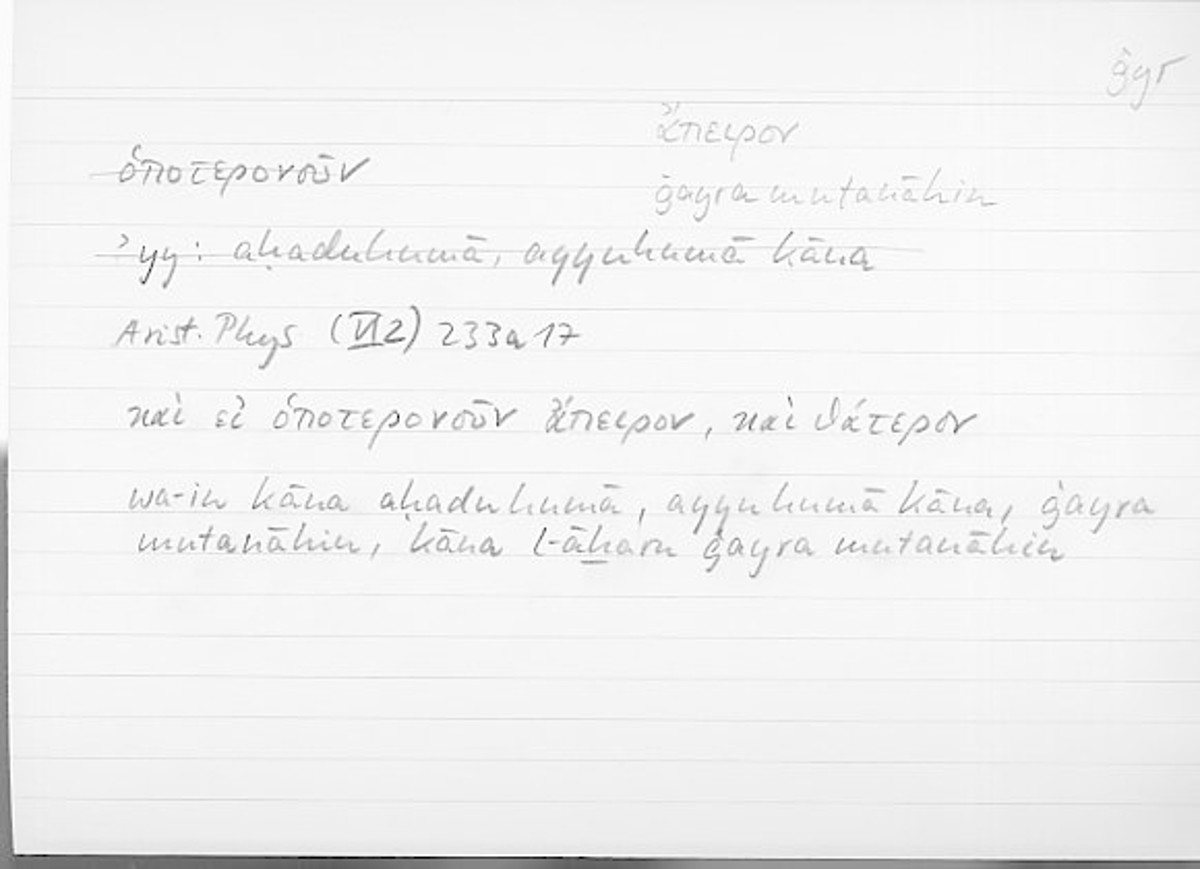 ġyr
ἄπειρον
ὁποτερονοῦν
ġayra mutanāhin
ʾyy: aḥaduhumā, ayyuhumā kāna
Arist. Phys (VI 2) 233a17
καὶ εἰ ὁποτερονοῦν ἄπειρον, καὶ θάτερον
wa-in kāna aḥaduhumā, ayyuhumā kāna, ġayra
mutanāhin, kāna l-āḫaru ġayra mutanāhin